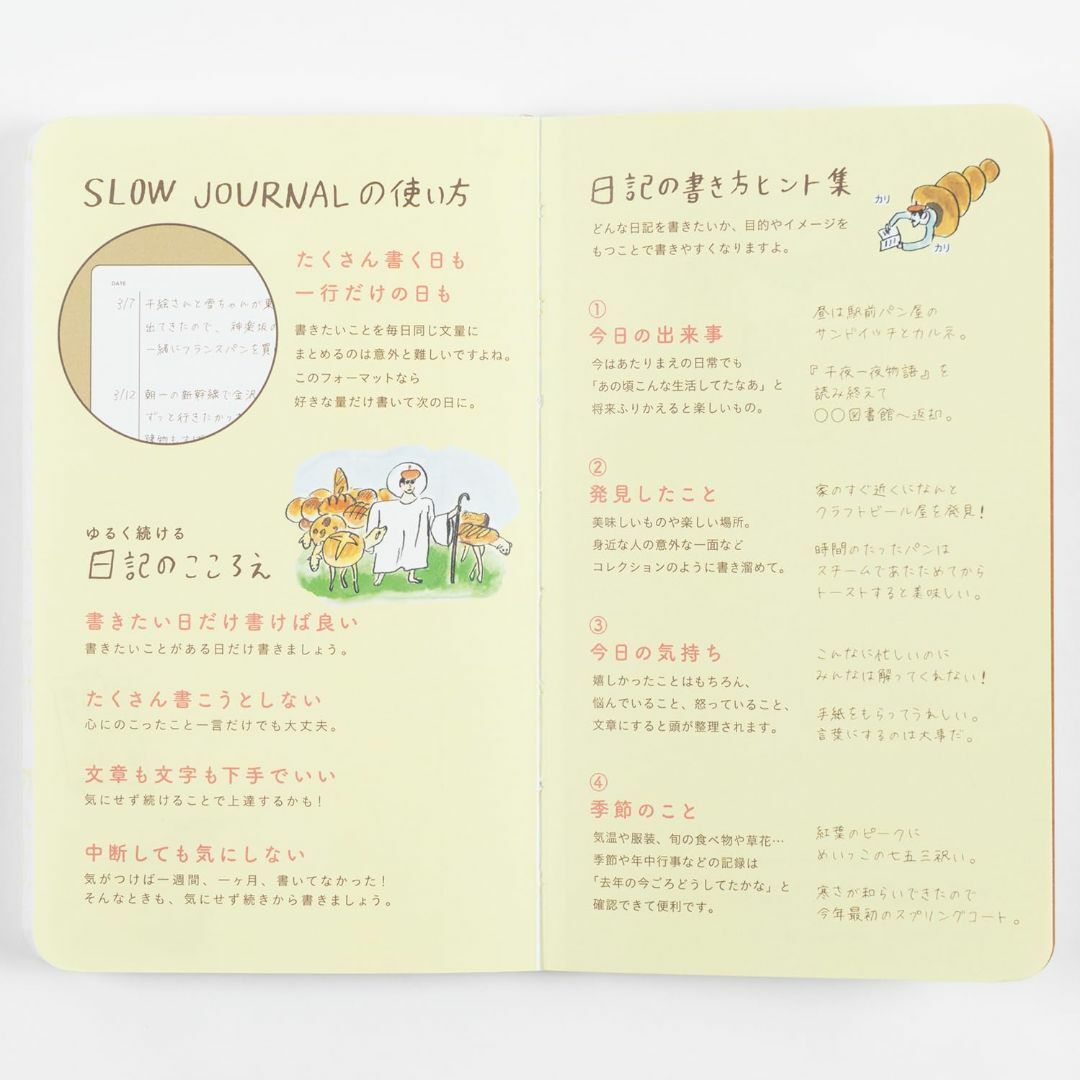 SLOW JOURNALの使い方
DATE
3/7 千絵さんと雪ちゃんが東
出てきたので、神楽坂の
一緒にフランスパンを買
3/12 朝一の新幹線で金沢
ずっと行きたかった
たくさん書く日も
一行だけの日も
書きたいことを毎日同じ文量に
まとめるのは意外と難しいですよね。
このフォーマットなら
好きな量だけ書いて次の日に。
ゆるく続ける
日記のこころえ
書きたい日だけ書けば良い
書きたいことがある日だけ書きましょう。
たくさん書こうとしない
心にのこったこと一言だけでも大丈夫。
文章も文字も下手でいい
気にせず続けることで上達するかも!
中断しても気にしない
気がつけば一週間、一ヶ月、書いてなかった!
そんなときも、気にせず続きから書きましょう。
日記の書き方ヒント集
どんな日記を書きたいか、目的やイメージを
もつことで書きやすくなりますよ。
カリ
カリ
①
今日の出来事
今はあたりまえの日常でも
「あの頃こんな生活してたなあ」と
将来ふりかえると楽しいもの。
昼は駅前パン屋の
サンドイッチとカルネ。
『千夜一夜物語』を
読み終えて
○○図書館へ返却。
②
発見したこと
美味しいものや楽しい場所。
身近な人の意外な一面など
コレクションのように書き溜めて。
家のすぐ近くになんと
クラフトビール屋を発見!
時間のたったパンは
スチームであたためてから
トーストすると美味しい。
③
今日の気持ち
嬉しかったことはもちろん、
悩んでいること、怒っていること、
文章にすると頭が整理されます。
こんなに忙しいのに
みんなは解ってくれない!
手紙をもらってうれしい。
言葉にするのは大事だ。
④
季節のこと
気温や服装、旬の食べ物や草花…
季節や年中行事などの記録は
「去年の今ごろどうしてたかな」と
確認できて便利です。
紅葉のピークに
めいっこの七五三祝い。
寒さが和らいできたので
今年最初のスプリングコート。